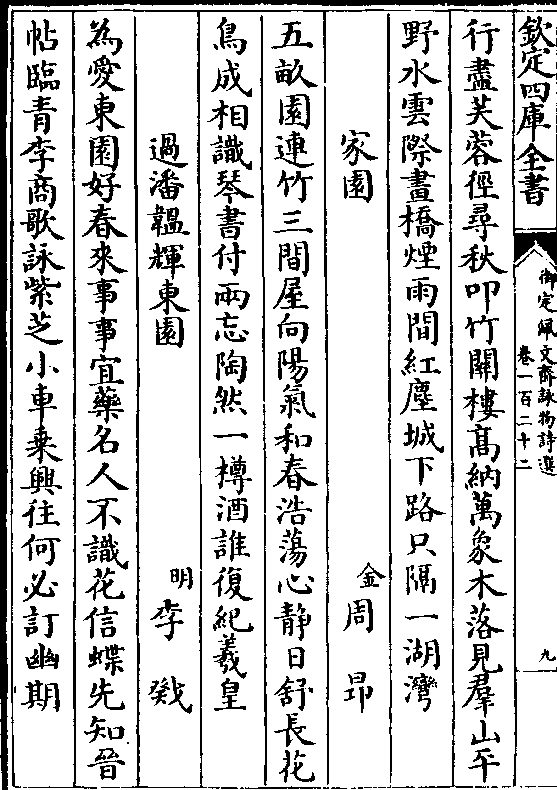 欽定四庫全書
御定佩文齋詠物詩選
卷一百二十二
九
行盡芙蓉徑尋秋叩竹關樓髙納萬象木落見羣山平
野水雲際畫橋煙雨間紅塵城下路只隔一湖灣
家園
金周昻
五畝園連竹三間屋向陽氣和春浩蕩心静日舒長花
鳥成相識琴書付兩忘陶然一樽酒誰復紀羲皇
過潘韞輝東園
明李戣
為愛東園好春來事事宜藥名人不識花信蝶先知晉
帖臨青李商歌詠紫芝小車乗興往何必訂幽期